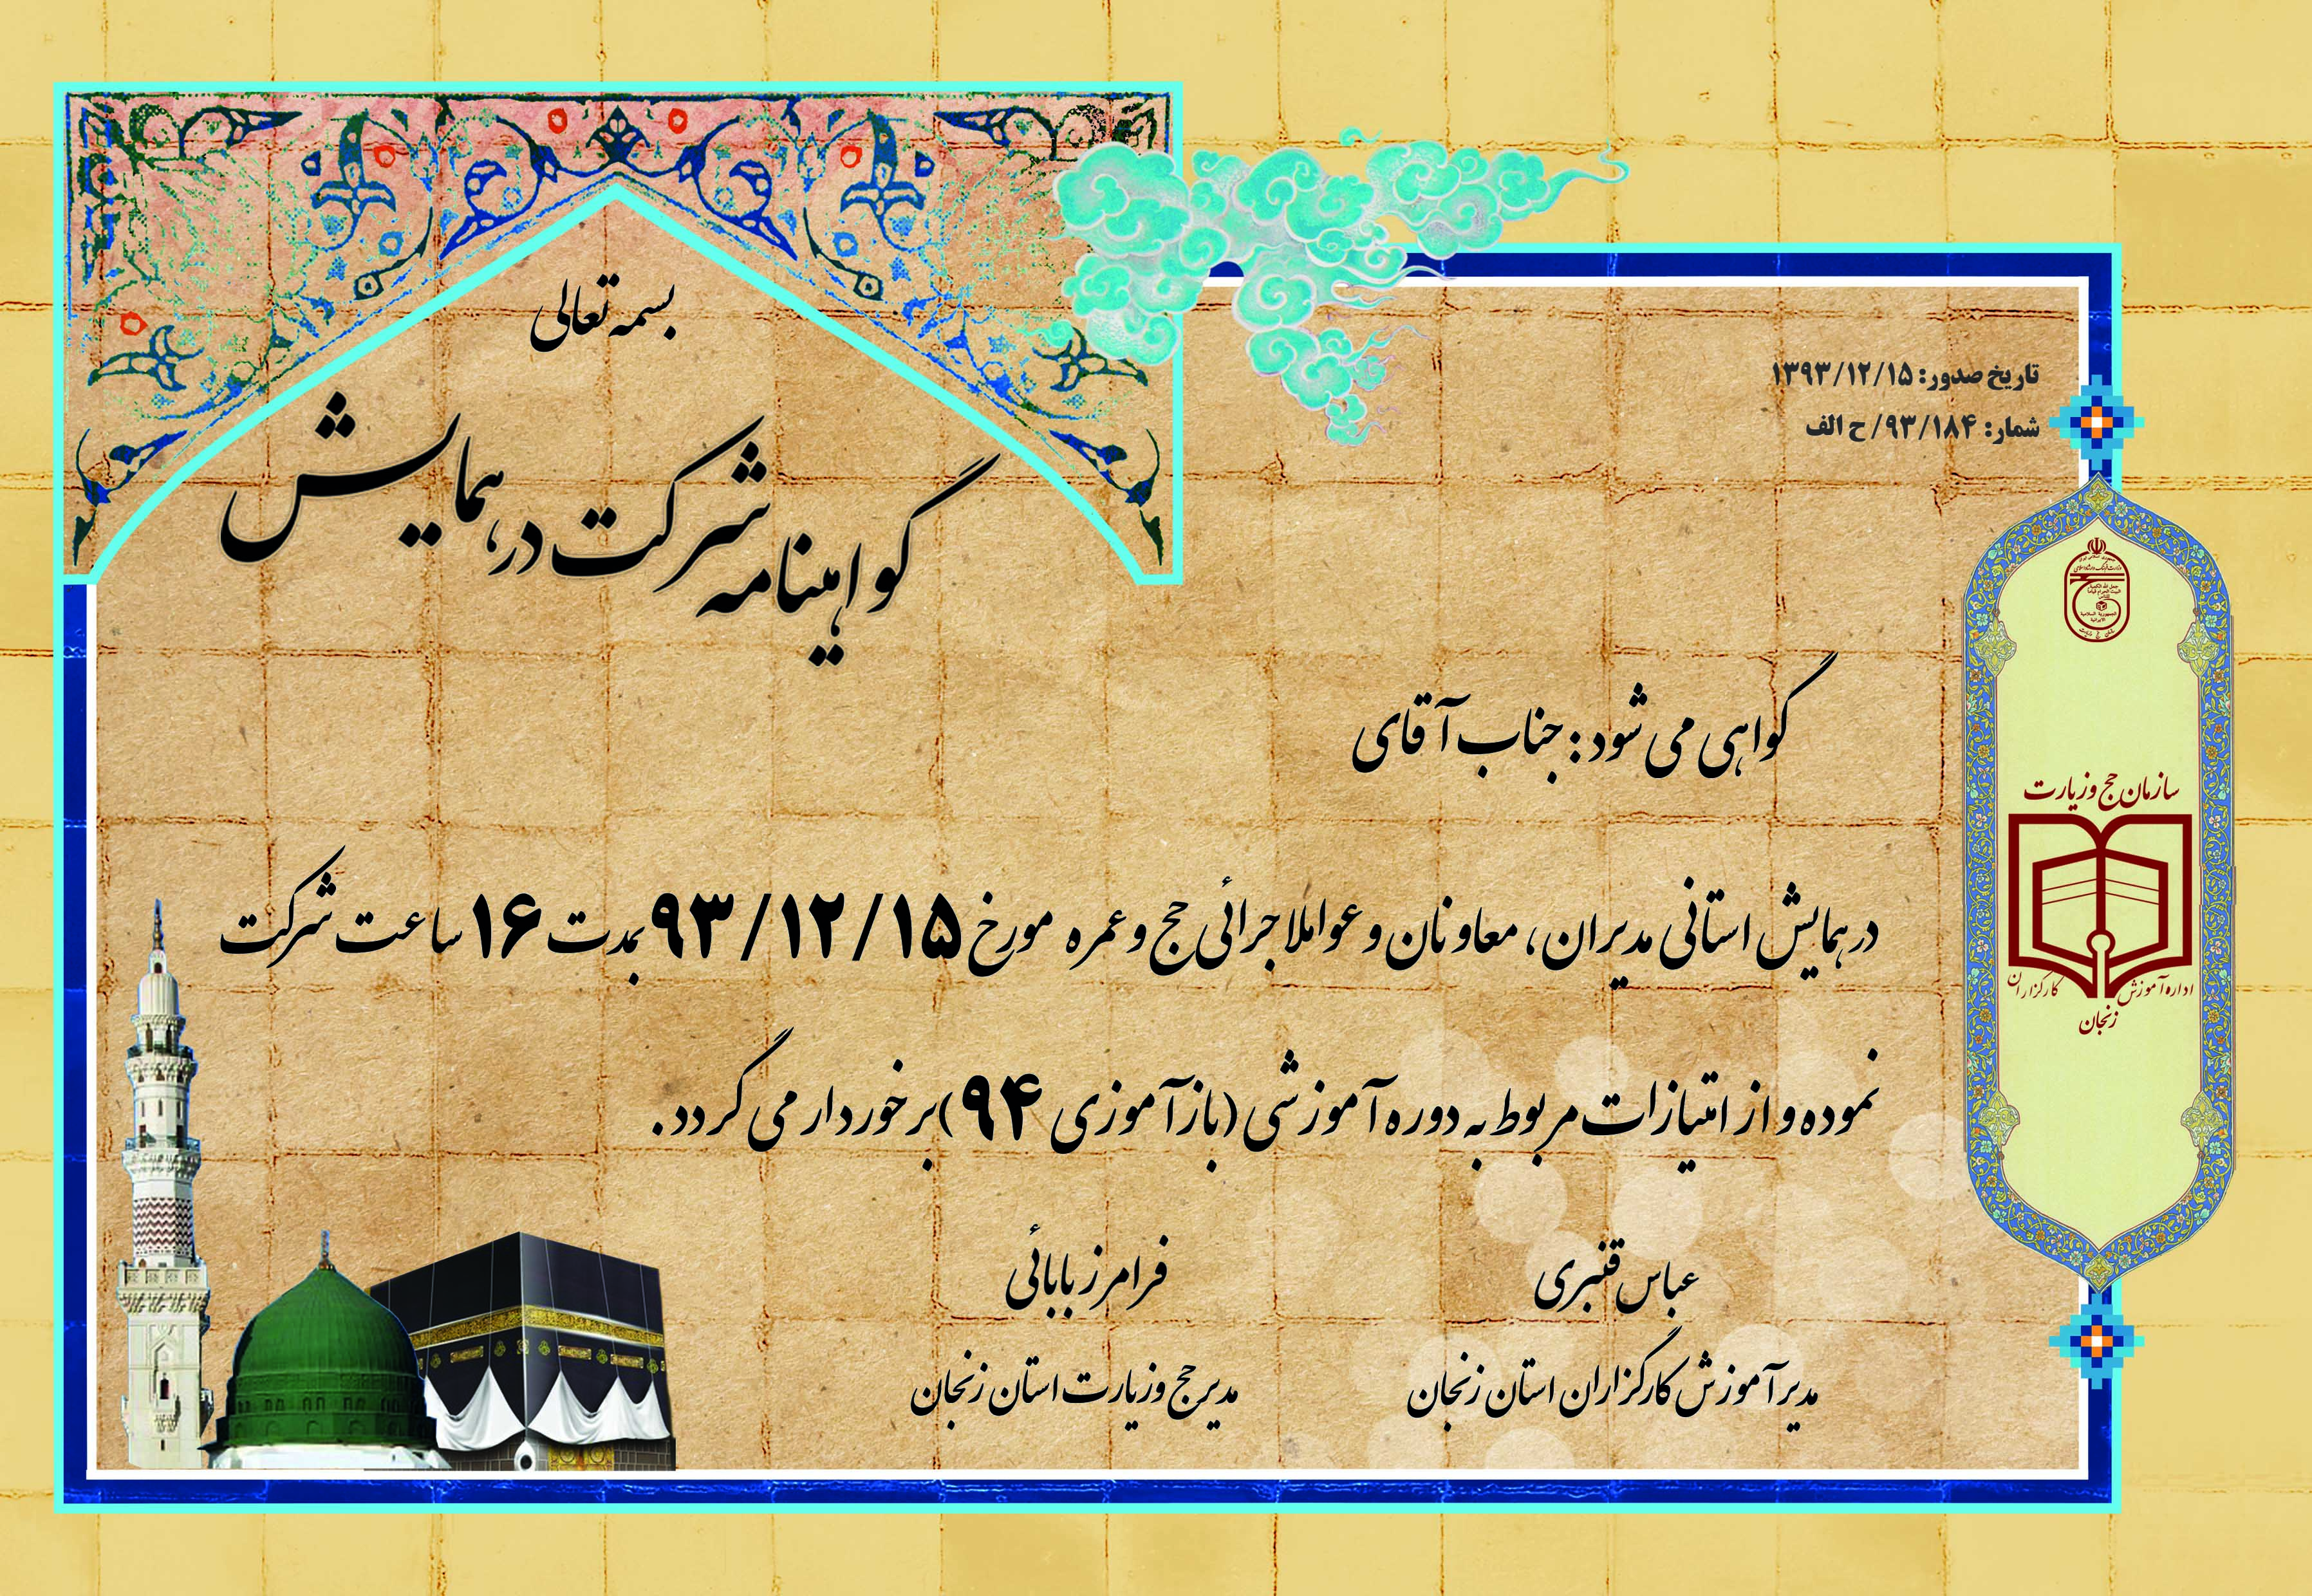 بسمه تعالی
گواهینامه شرکت در همایش
تاریخ صدور: ۱۳۹۳/۱۲/۱۵
شمار: ۹۳/۱۸۴/ح الف
گواهی می شود: جناب آقای
در همایش استانی مدیران، معاونان و عوامل اجرائی حج و عمره مورخ ۹۳/۱۲/۱۵ بمدت ۱۶ ساعت شرکت
نموده و از امتیازات مربوط به دوره آموزشی (باز آموزی ۹۴) برخوردار می گردد.
عباس قنبری
مدیر آموزش کارگزاران استان زنجان
فرامرز بابائی
مدیر حج و زیارت استان زنجان
سازمان حج و زیارت
اداره آموزش کارگزاران
زنجان